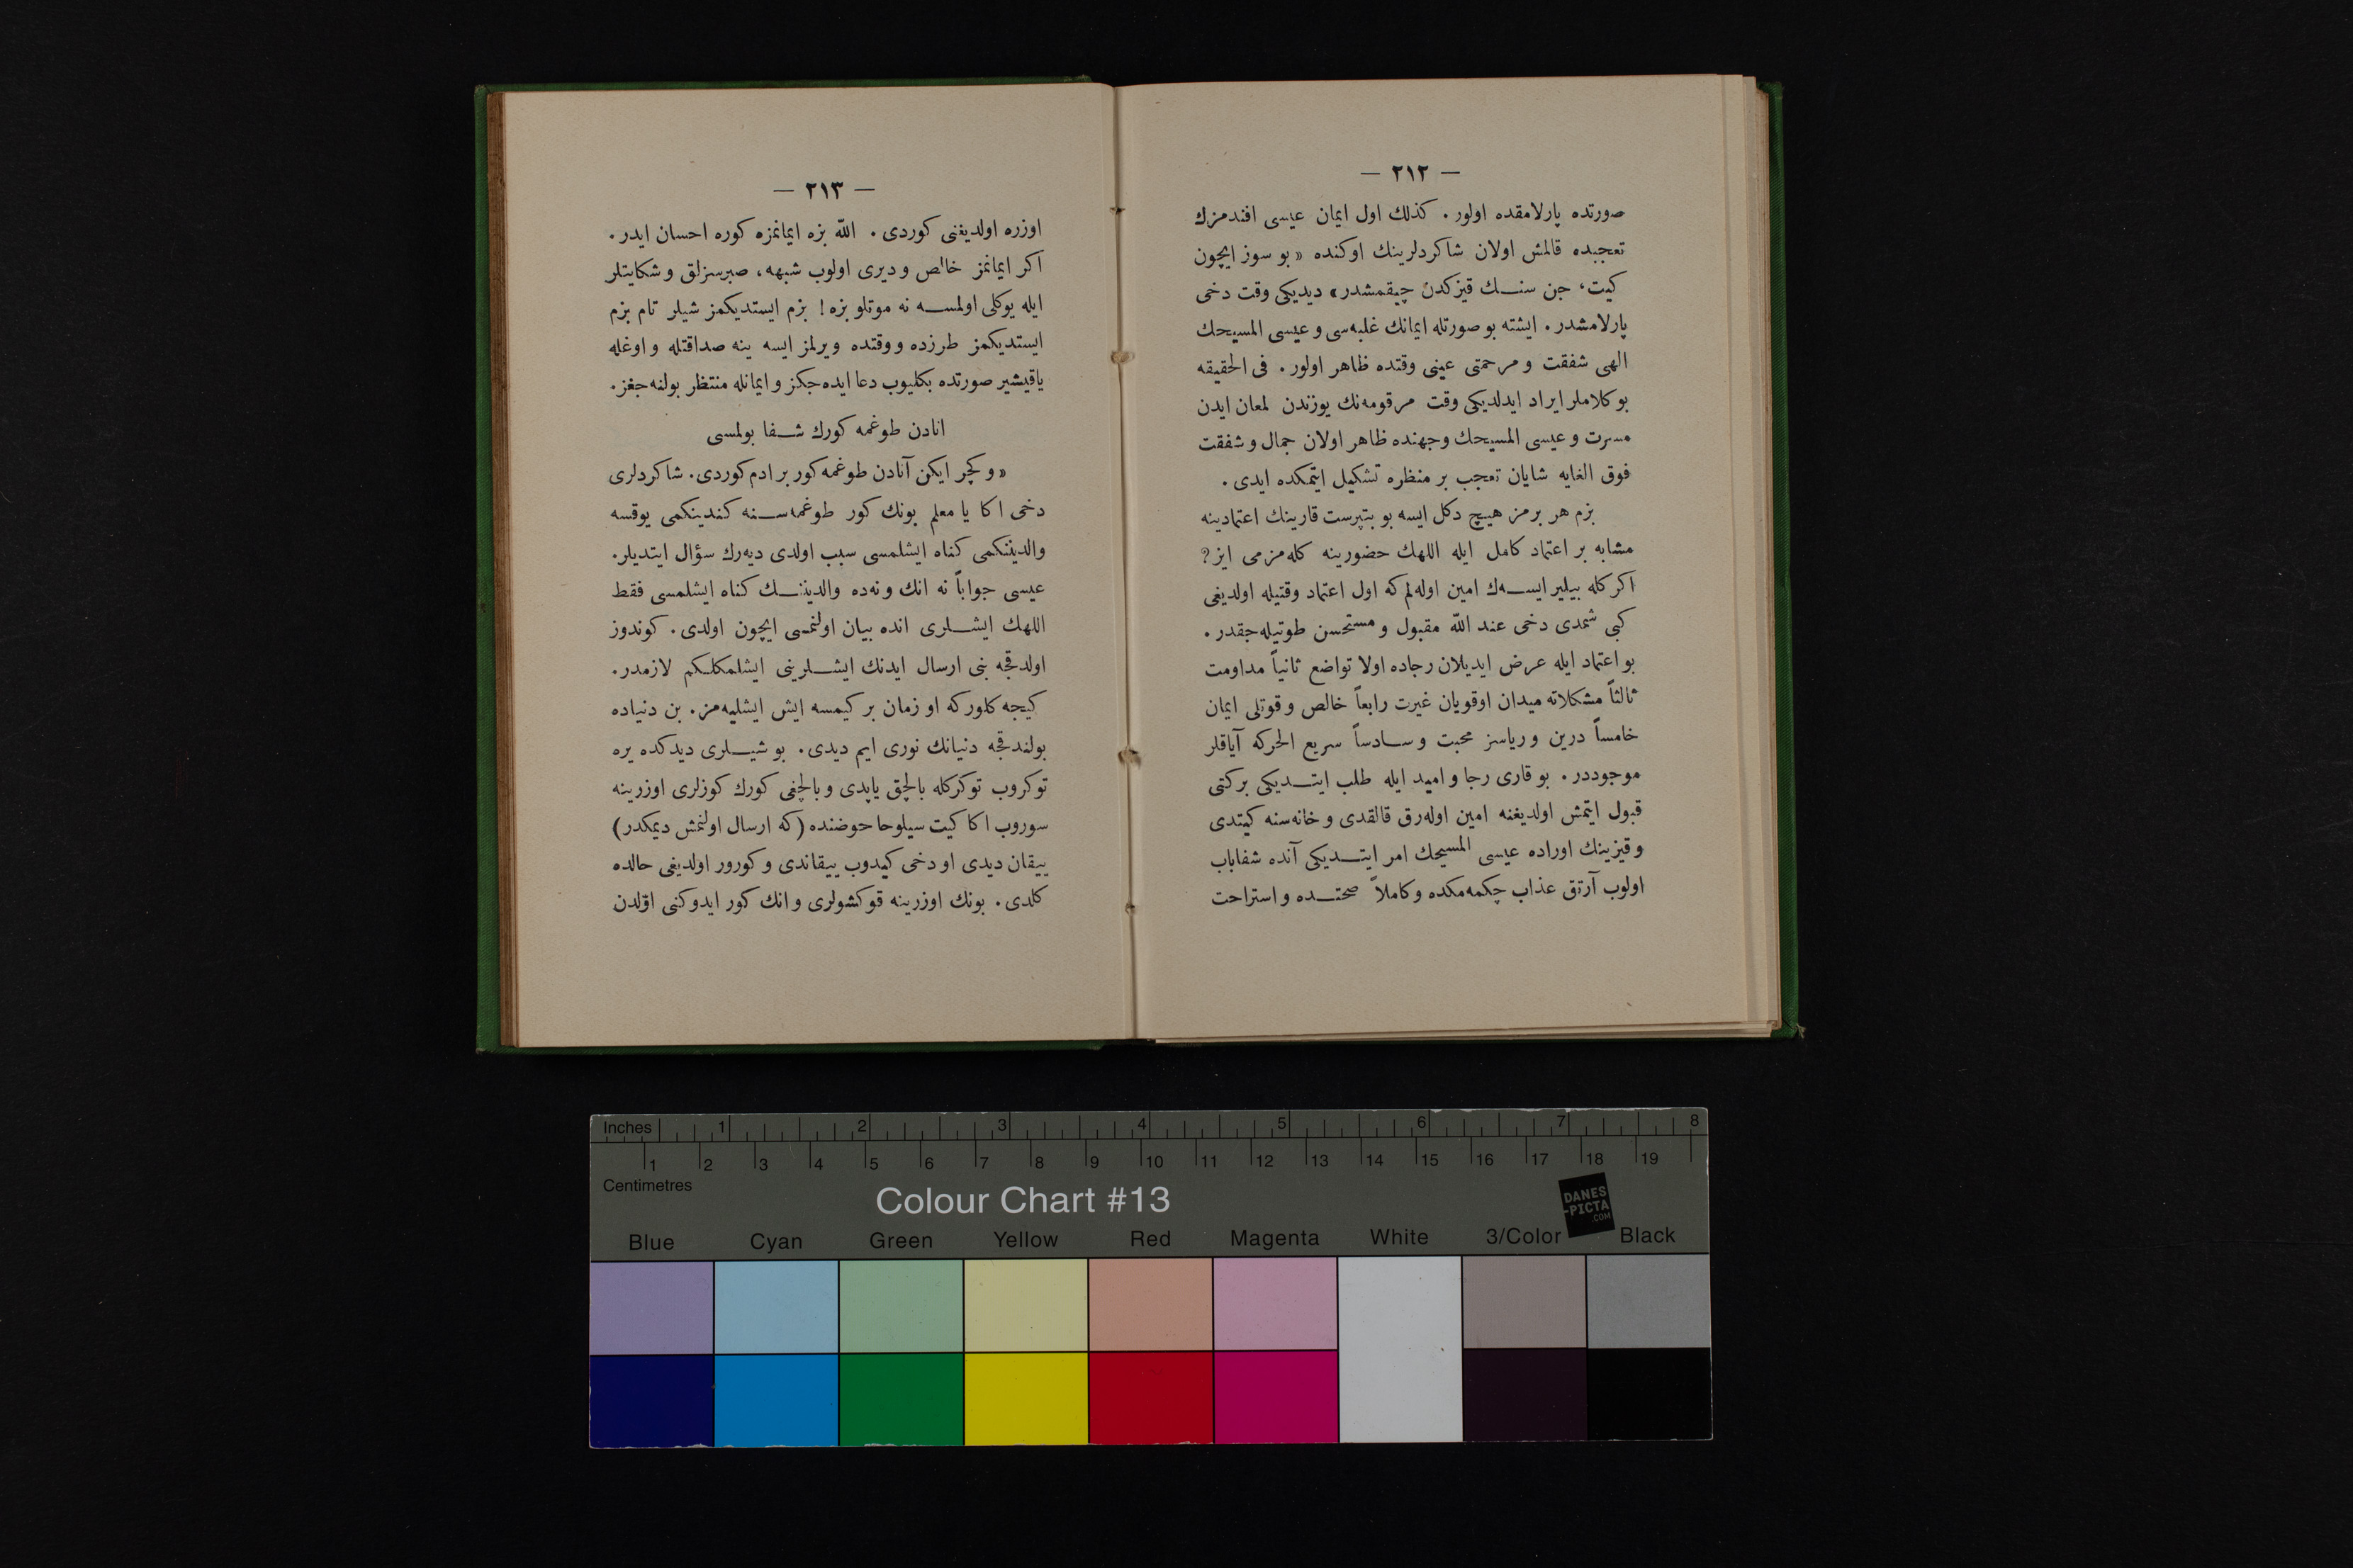 — ٢١٢ —
صورتده پارلامقده اولور. كذلك اول ايمان عيسى افندمزك
تعجبده قالمش اولان شاكردلرينك اوكنده «بو سوز ايچون
كيت، جن سنــك قيزكدن چيقمشدر» ديديكى وقت دخى
پارلامشدر. ايشته بو صورتله ايمانك غلبه‌سى و عيسى المسيحك
الهى شفقت و مرحمتى عينى وقتده ظاهر اولور. فى الحقيقه
بو كلاملر ايراد ايدلديكى وقت مرقومه‌نك يوزندن لمعان ايدن
مسرت و عيسى المسيحك وجهنده ظاهر اولان جمال و شفقت
فوق الغايه شايان تعجب بر منظره تشكيل ايتمكده ايدى.
بزم هر برمز هيچ دكل ايسه بو بتپرست قارينك اعتمادينه
مشابه بر اعتماد كامل ايله اللهك حضورينه كله‌مزمى ايز؟
اكر كله بيلير ايســه‌ك امين اوله‌لم كه اول اعتماد وقتيله اولديغى
كبى شمدى دخى عند الله مقبول و مستحسن طوتيله‌جقدر.
بو اعتماد ايله عرض ايديلان رجاده اولا تواضع ثانياً مداومت
ثالثاً مشكلاته ميدان اوقويان غيرت رابعاً خالص و قوتلى ايمان
خامساً درين و رياسز محبت و ســادساً سريع الحركه آياقلر
موجوددر. بو قارى رجا و اميد ايله طلب ايتــديكى بركتى
قبول ايتمش اولديغنه امين اوله‌رق قالقدى و خانه‌سنه كيتدى
و قيزينك اوراده عيسى المسيحك امر ايتــديكى آنده شفاياب
اولوب آرتق عذاب چكمه‌مكده و كاملاً صحتــده و استراحت
— ٢١٣ —
اوزره اولديغنى كوردى. الله بزه ايمانمزه كوره احسان ايدر.
اكر ايمانمز خالص و ديرى اولوب شبهه، صبرسزلق و شكايتلر
ايله يوكلى اولمســه نه موتلو بزه! بزم ايستديكمز شيلر تام بزم
ايستديكمز طرزده و وقتده ويرلمز ايسه ينه صداقتله و اوغله
ياقيشير صورتده بكليوب دعا ايده‌جكز و ايمانله منتظر بولنه‌جغز.
انادن طوغمه كورك شــفا بولمسى
«و كچر ايكن آنادن طوغمه كور بر ادم كوردى. شاكردلرى
دخى اكا يا معلم بونك كور طوغمه‌ســنه كندينكمى يوقسه
والديننكمى كناه ايشلمسى سبب اولدى ديه‌رك سؤال ايتديلر.
عيسى جواباً نه انك و نه‌ده والديننــك كناه ايشلمسى فقط
اللهك ايشــلرى انده بيان اولنمسى ايچون اولدى. كوندوز
اولدقجه بنى ارسال ايدنك ايشــلرينى ايشلمكلكم لازمدر.
كيجه كلور كه او زمان بر كيمسه ايش ايشليه‌مز. بن دنياده
بولندقجه دنيانك نورى ايم ديدى. بو شيــلرى ديدكده يره
توكروب توكركله بالچق ياپدى و بالچغى كورك كوزلرى اوزرينه
سوروب اكا كيت سيلوحا حوضنده (كه ارسال اولنمش ديمكدر)
ييقان ديدى او دخى كيدوب ييقاندى و كورور اولديغى حالده
كلدى. بونك اوزرينه قوكشولرى و انك كور ايدوكنى اوّلدن
Inches 1 2 3 4 5 6 7 8
1 2 3 4 5 6 7 8 9 10 11 12 13 14 15 16 17 18 19
Centimetres
Colour Chart #13
DANES
-PICTA
.COM
Blue Cyan Green Yellow Red Magenta White 3/Color Black